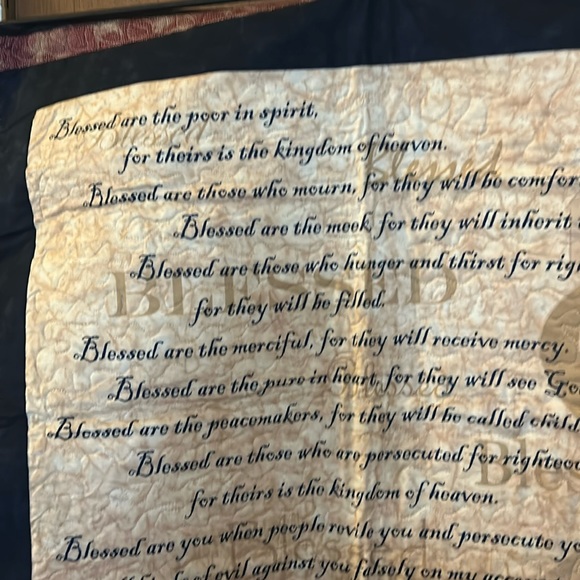 Blessed are the poor in spirit,
for theirs is the kingdom of heaven.
Blessed
Blessed are those who mourn, for they will be comfor
Blessed are the meek for they will inherit
Blessed are those who hunger and thirst for rig
BLESSED
for they will be filled.
Blessed are the merciful, for they will receive mercy.
Blessed are the pure in heart, for they will see Go
Blessed are the peacemakers, for they will be called child
Blessed are those who are persecuted for righteou
Bles
for theirs is the kingdom of heaven.
Blessed are you when people revile you and persecute yo
of evil against you falsely on my